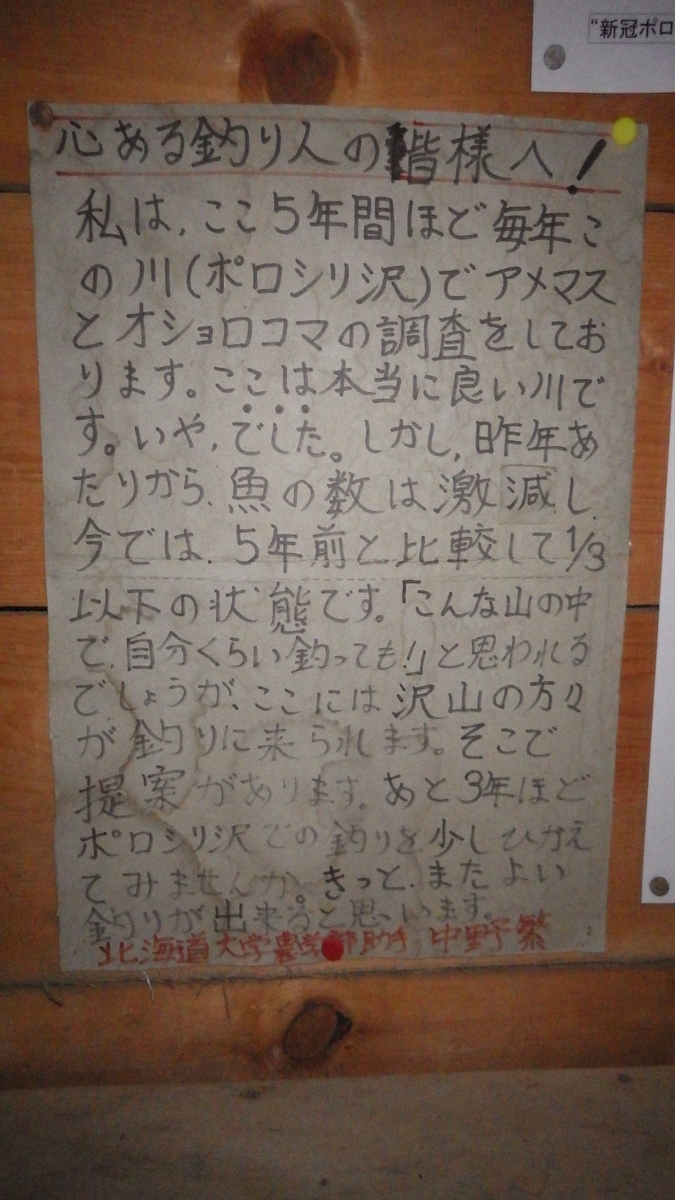 "新冠ポロ
心ある釣り人の皆様へ!
私は、ここ5年間ほど毎年こ
の川(ポロシリ沢)でアメマス
とオショロコマの調査をしてお
ります。ここは本当に良い川で
す。いや、でした。しかし、昨年あ
たりから、魚の数は激減し、
今では、5年前と比較して1/3
以下の状態です。「こんな山の中
で、自分くらい釣っても!」と思われる
でしょうが、ここには沢山の方々
が釣りに来られます。そこで
提案があります。あと3年ほど
ポロシリ沢での釣りを少しひかえ
てみませんか。きっと、またよい
釣りが出来ると思います。
北海道大学農学部助手 中野繁